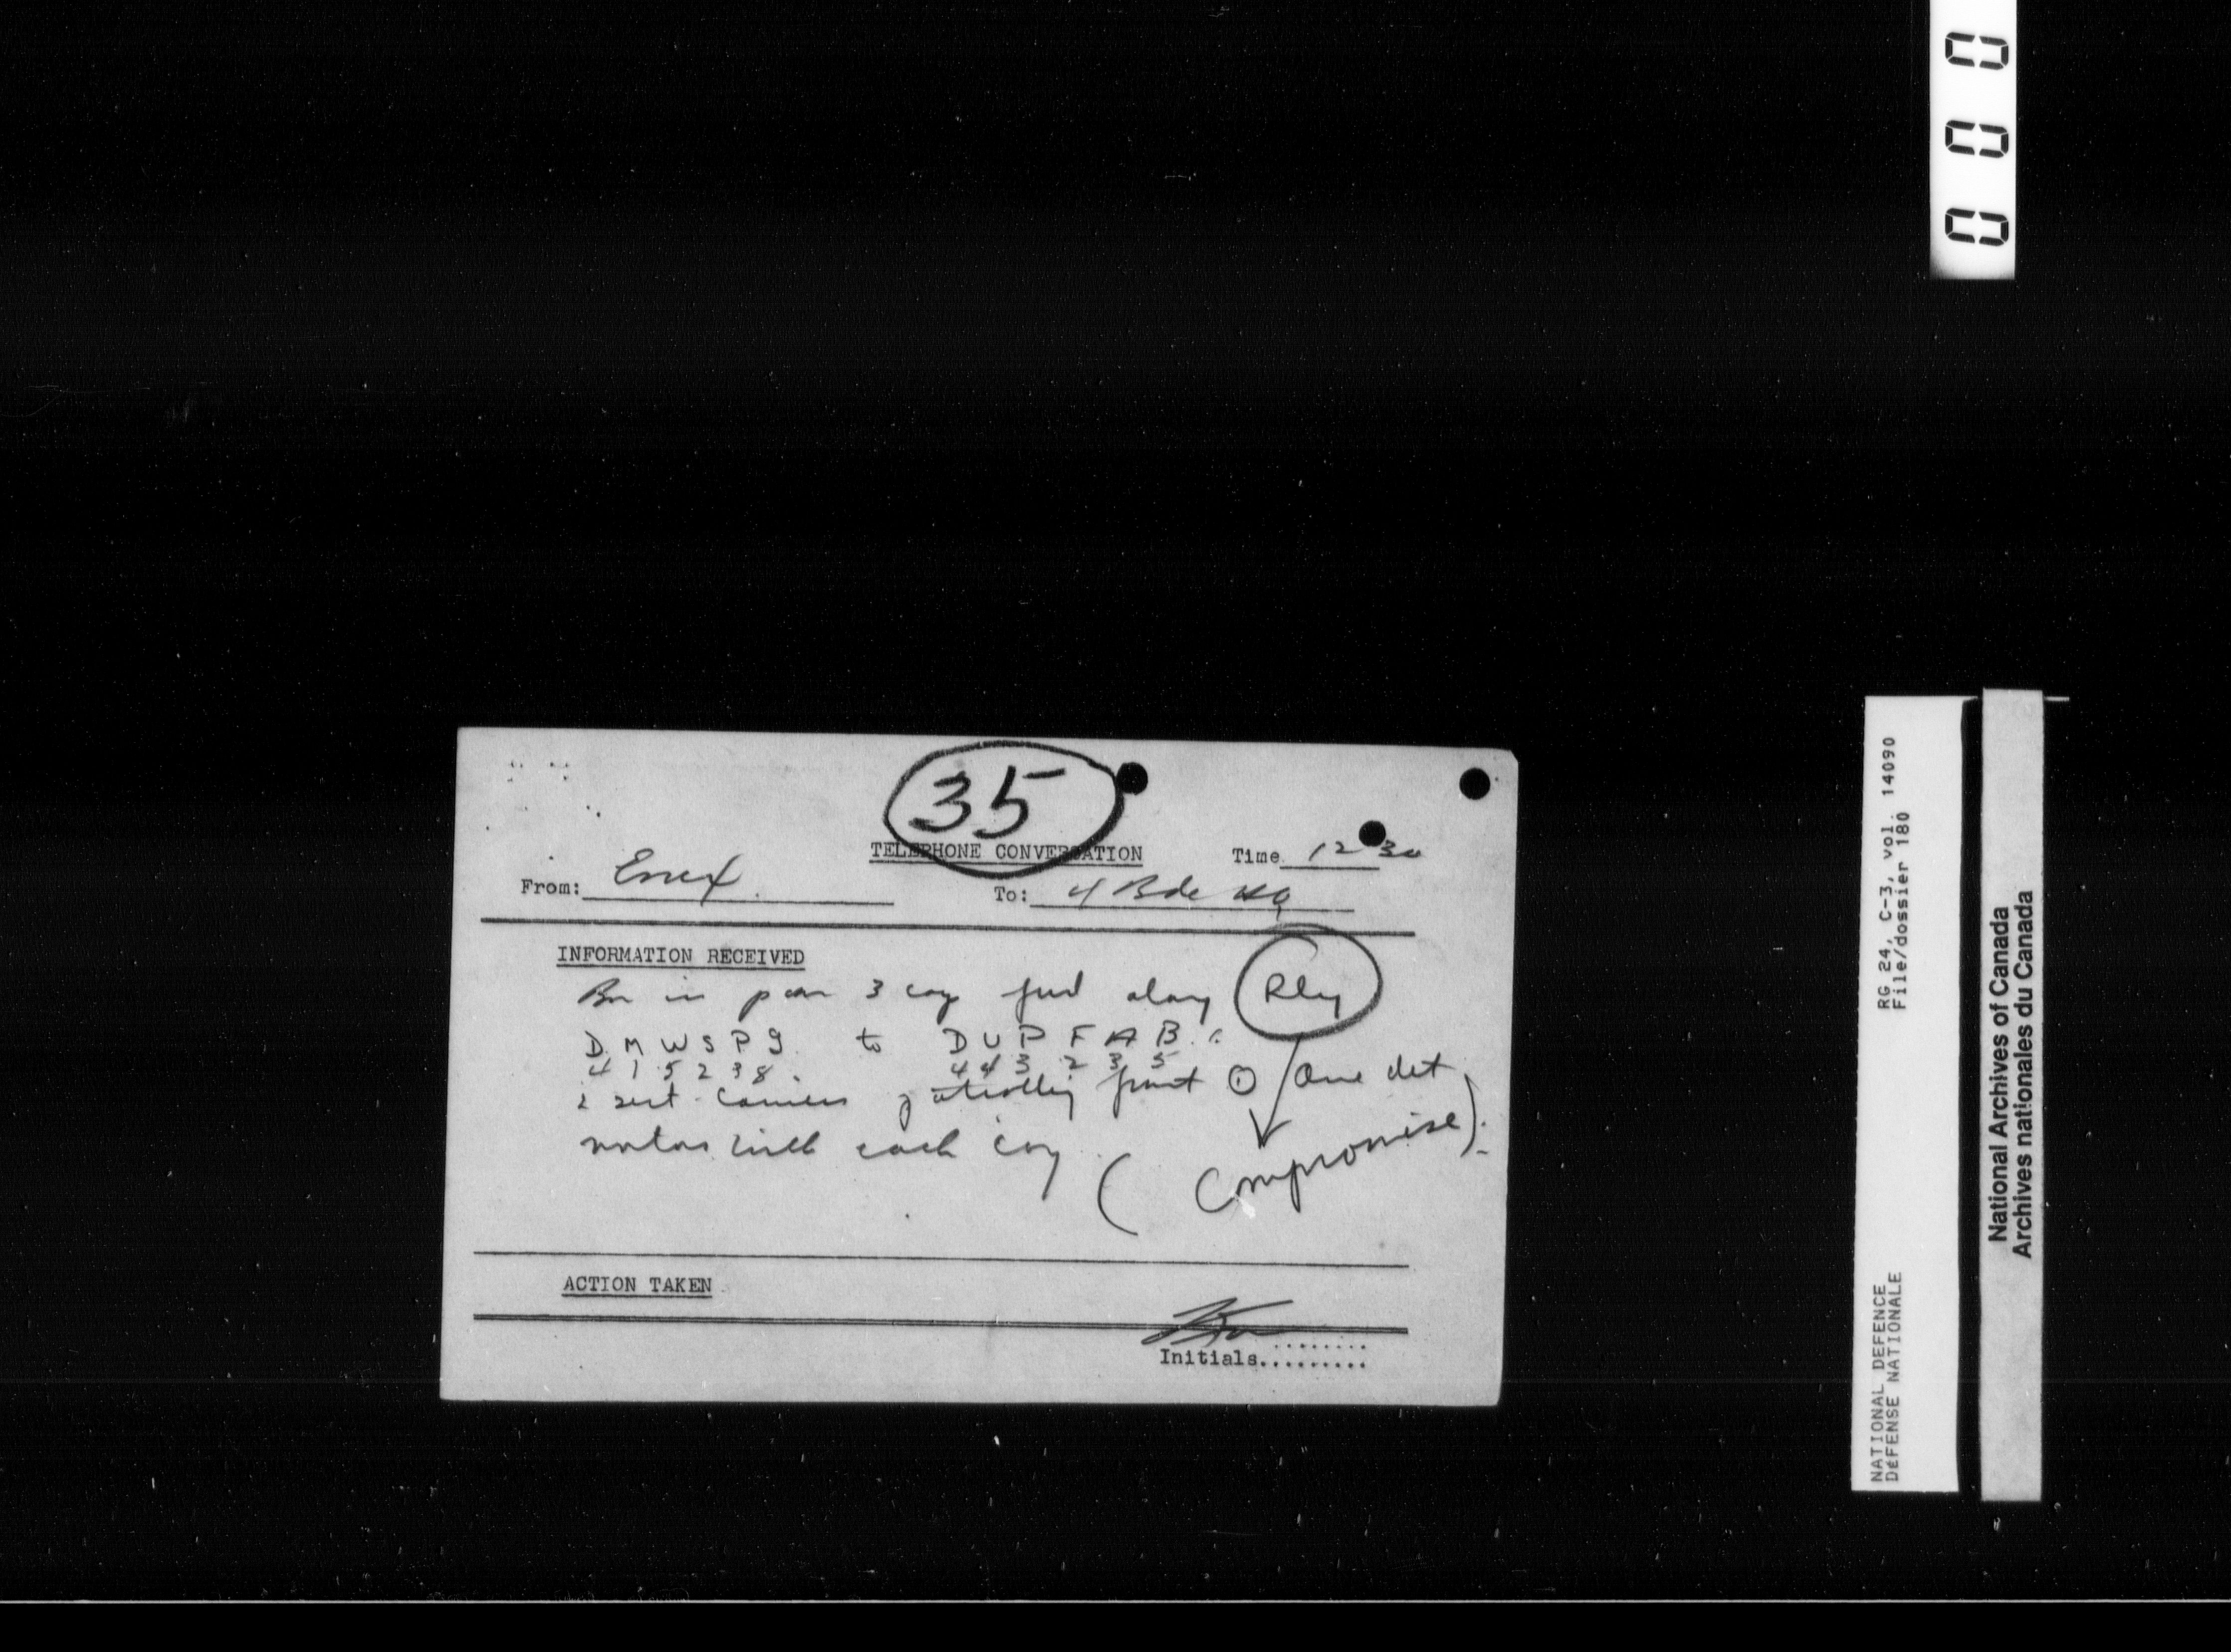 0 0 0
35
TELEPHONE CONVERSATION
Time 12 30
From: Essex
To: 4 Bde HQ
INFORMATION RECEIVED
Bn in posn 3 coy fwd along Rly
D M W S P G to D U P F A B.
4 1 5 2 3 8. 4 4 3 2 3 5
2 sect carriers patrolling front ⊙ One det
mortars with each coy
(Compromise).
ACTION TAKEN
Initials.........
RG 24, C-3, vol. 14090
File/dossier 180
NATIONAL DEFENCE
DÉFENSE NATIONALE
National Archives of Canada
Archives nationales du Canada